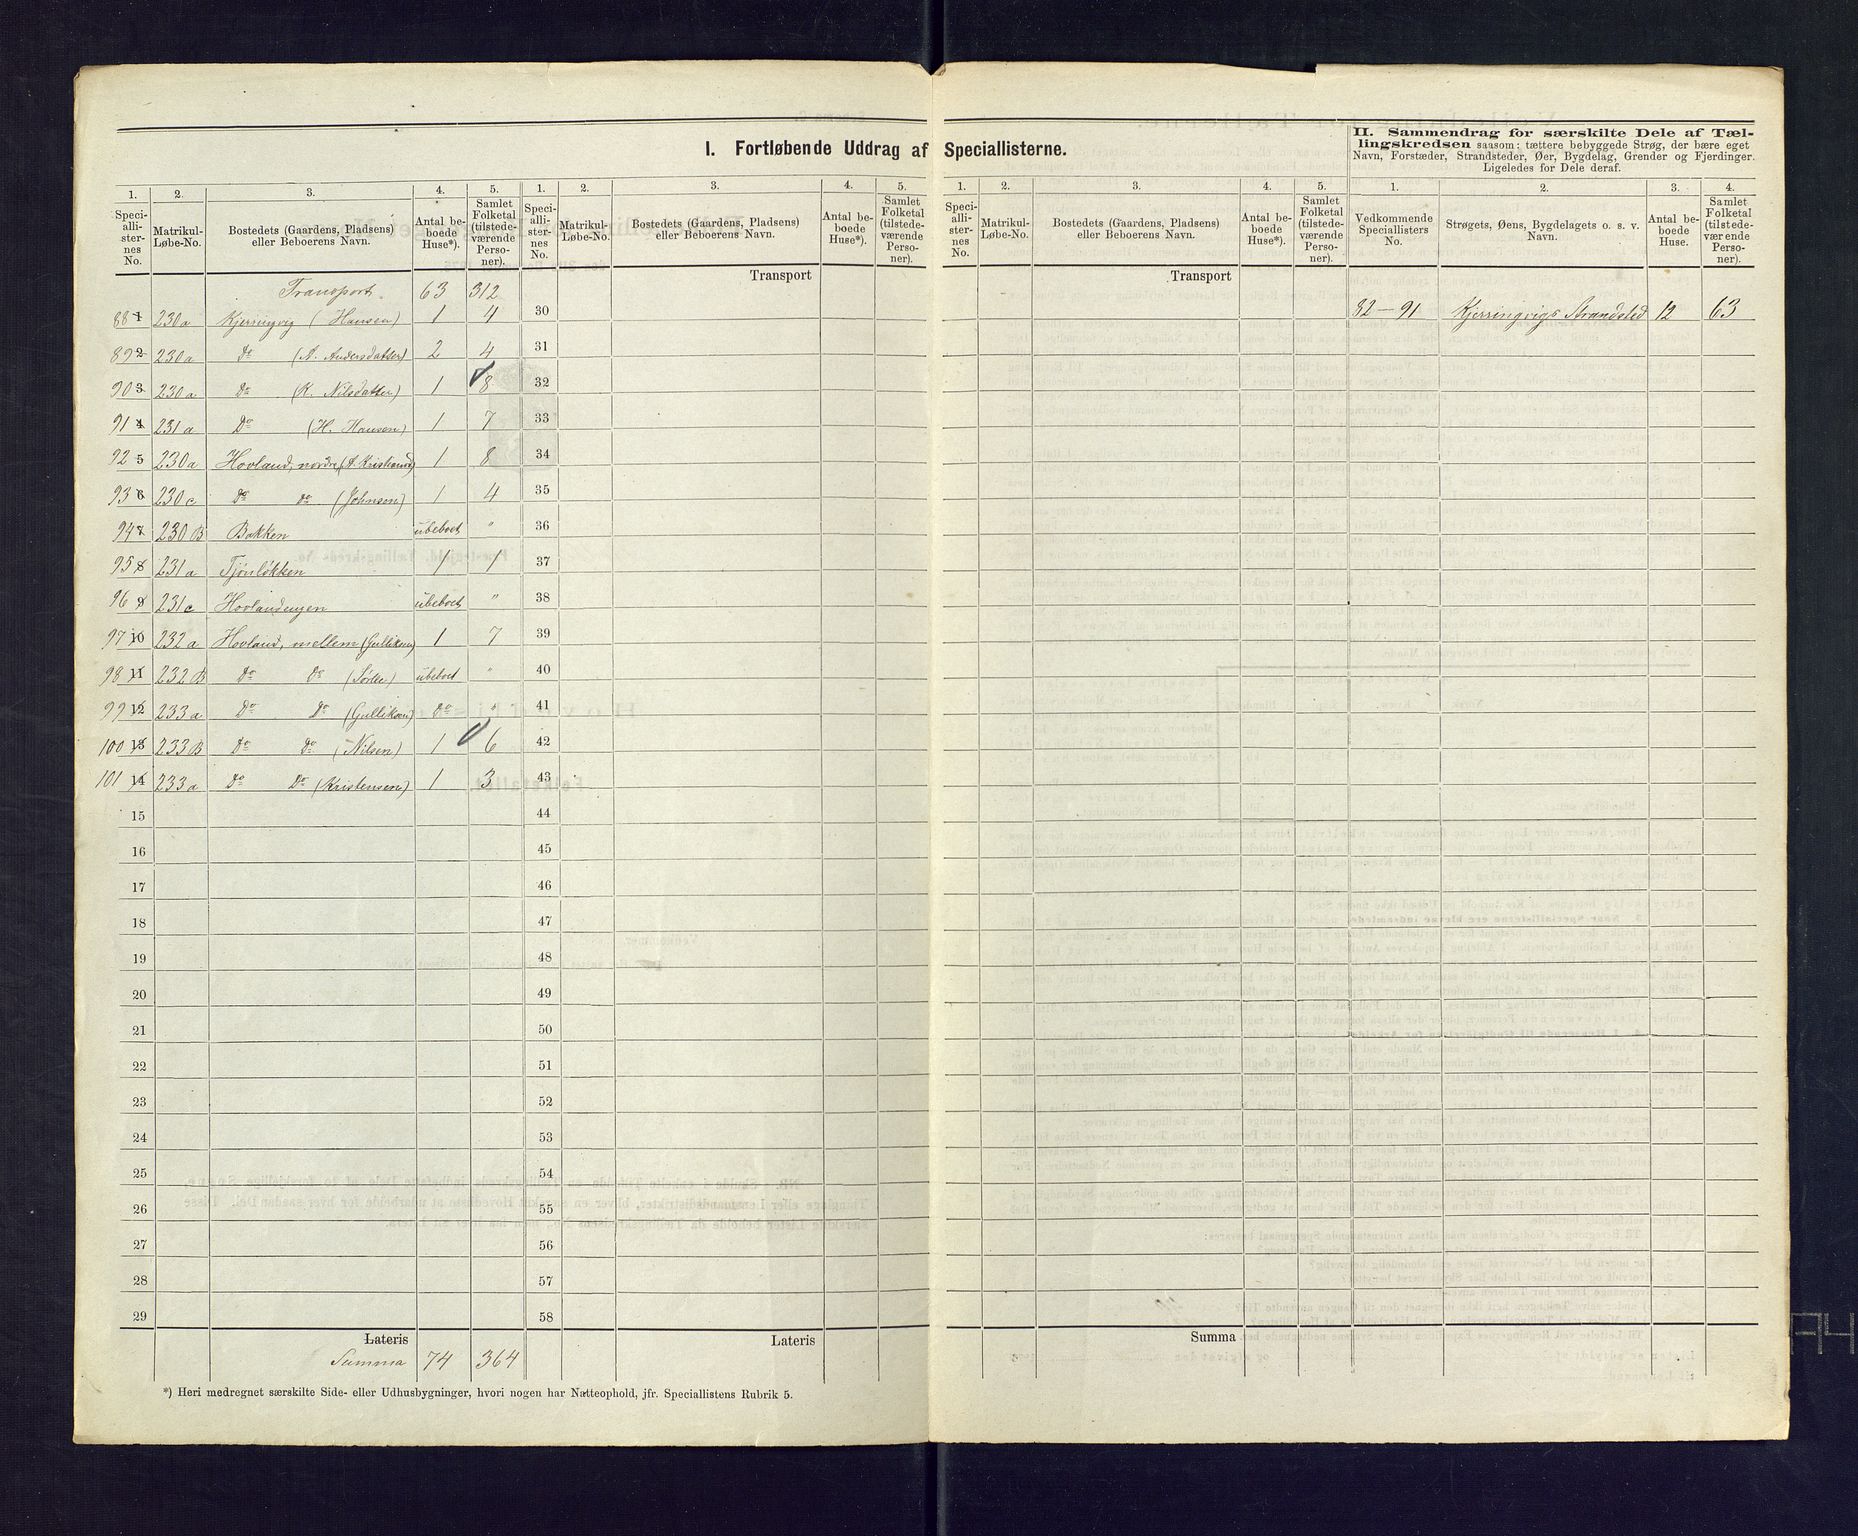 I. Fortløbende Uddrag af Speciallisterne.
II. Sammendrag for særskilte Dele af Tæl-
lingskredsen saasom: tættere bebyggede Strøg, der bære eget
Navn, Forstæder, Strandsteder, Øer, Bygdelag, Grender og Fjerdinger.
Ligeledes for Dele deraf.
1. 2. 3. 4. 5. 1. 2. 3. 4. 5. 1. 2. 3. 4. 5. 1. 2. 3. 4.
Speci-allister-nes No. Matrikul-Løbe-No. Bostedets (Gaardens, Pladsens) eller Beboerens Navn. Antal be-boede Huse*). Samlet Folketal (tilstede-værende Perso-ner).
Speci-allister-nes No. Matrikul-Løbe-No. Bostedets (Gaardens, Pladsens) eller Beboerens Navn. Antal be-boede Huse*). Samlet Folketal (tilstede-værende Perso-ner).
Speci-allister-nes No. Matrikul-Løbe-No. Bostedets (Gaardens, Pladsens) eller Beboerens Navn. Antal be-boede Huse*). Samlet Folketal (tilstede-værende Perso-ner).
Vedkommende Speciallisters No. Strøgets, Øens, Bygdelagets o. s. v. Navn. Antal be-boede Huse. Samlet Folketal (tilstede-værende Perso-ner).
Transport 63 312 Transport Transport
88 1 230a Kjerringvig (Hansen) 1 4 30 82-91 Kjerringvigs Strandsted 12 63
89 2 230a Do (A. Andersdatter) 2 4 31
90 3 230a Do (K. Nilsdatter) 1 8 32
91 4 231a Do (H. Hansen) 1 7 33
92 5 230a Hovland, nordre 1 8 34
93 6 230c Do do (Johnsen) 1 4 35
94 7 230B Bakken ubeboet " 36
95 8 231a Tjönlökken 1 1 37
96 9 231c Hovlandengen ubeboet " 38
97 10 232a Hovland, mellem (Gulliksen) 1 7 39
98 11 232B Do Do ubeboet " 40
99 12 233a Do Do (Gulliksen) do " 41
100 13 233B Do Do (Nilsen) 1 6 42
101 14 233a Do Do (Kristensen) 1 3 43
15 44
16 45
17 46
18 47
19 48
20 49
21 50
22 51
23 52
24 53
25 54
26 55
27 56
28 57
29 58
Lateris Lateris Summa
Summa 74 364
*) Heri medregnet særskilte Side- eller Udhusbygninger, hvori nogen har Natteophold, jfr. Speciallistens Rubrik 5.